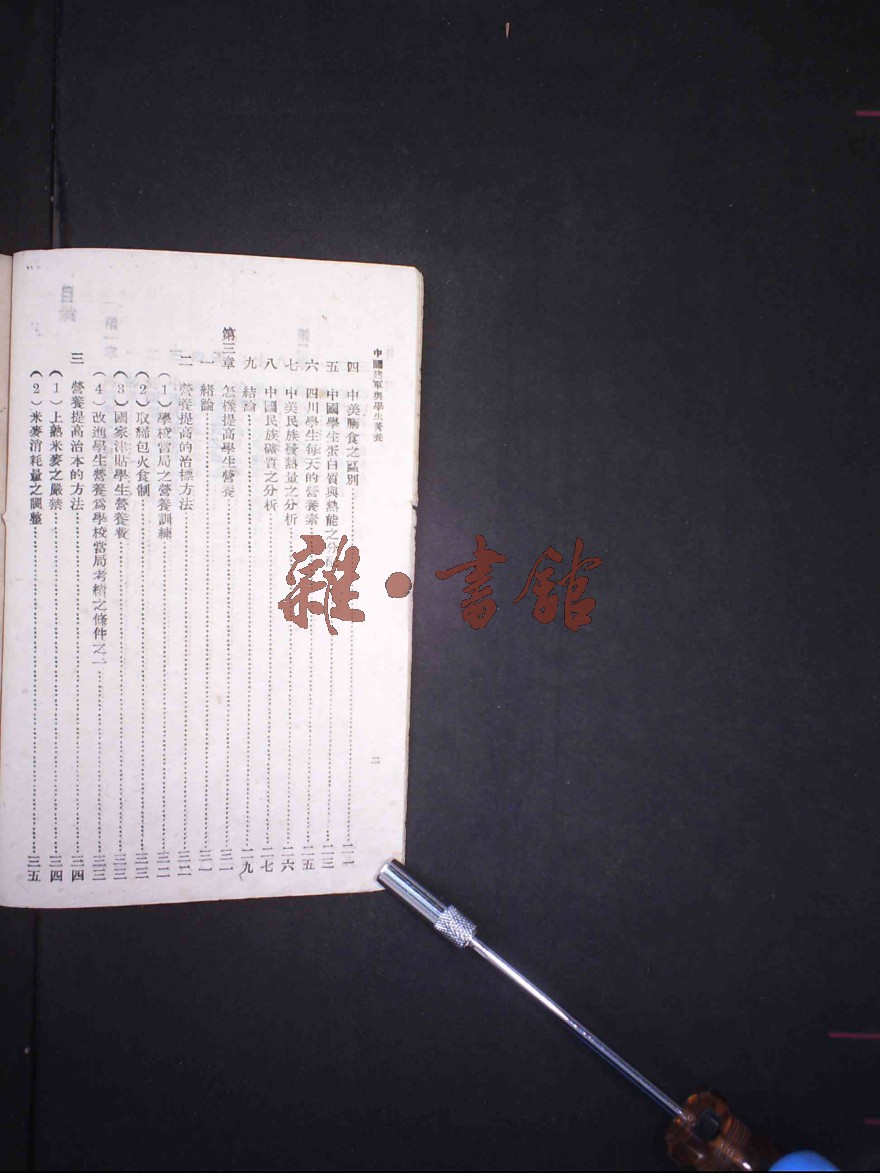 中國建軍與學生營養
二
四 中美膳食之區別…………二一
五 中國學生蛋白質與熱能之分…………二三
六 四川學生每天的營養素…………二五
七 中美民族發熱量之分析…………二六
八 中國民族礦質之分析…………二七
九 結論…………二九
第三章 怎樣提高學生營養…………三一
一 緒論…………三一
二 營養提高的治標方法…………三二
(1)學校當局之營養訓練…………三二
(2)取締包火食制…………三三
(3)國家津貼學生營養費…………三三
(4)改進學生營養為學校當局考績之條件之一…………三三
三 營養提高治本的方法…………三四
(1)上熟米麥之嚴禁…………三四
(2)米麥消耗量之調整…………三五
雜·書館
目